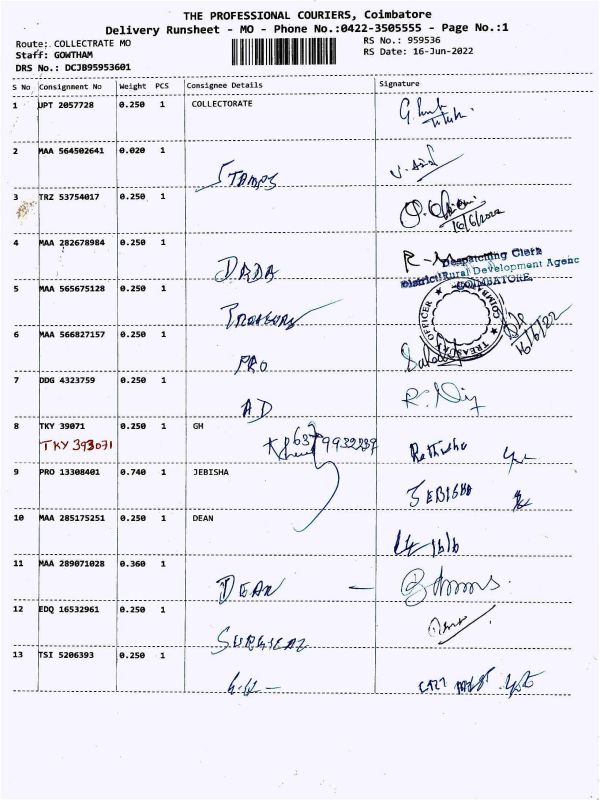 THE PROFESSIONAL COURIERS, Coimbatore
Delivery Runsheet - MO - Phone No.:0422-3505555 - Page No.:1
Route: COLLECTRATE MO
RS No.: 959536
Staff: GOWTHAM
RS Date: 16-Jun-2022
DRS No.: DCJB95953601
S No Consignment No Weight PCS Consignee Details Signature
1 JPT 2057728 0.250 1 COLLECTORATE
2 MAA 564502641 0.020 1
STAMPS
3 TRZ 53754017 0.250 1
16/6/2022
4 MAA 282678984 0.250 1
DRDA
Despatching Clerk
District Rural Development Agenc
COIMBATORE.
5 MAA 565675128 0.250 1
TREASURY OFFICER
16/6/22
6 MAA 566827157 0.250 1
PRO
7 DDG 4323759 0.250 1
AD
8 TKY 39071 0.250 1 GH
TKY 393071
9 PRO 13308401 0.740 1 JEBISHA
JEBISHA
10 MAA 285175251 0.250 1 DEAN
16/6
11 MAA 289071028 0.360 1
DEAN -
12 EDQ 16532961 0.250 1
SURGICAL
13 TSI 5206393 0.250 1